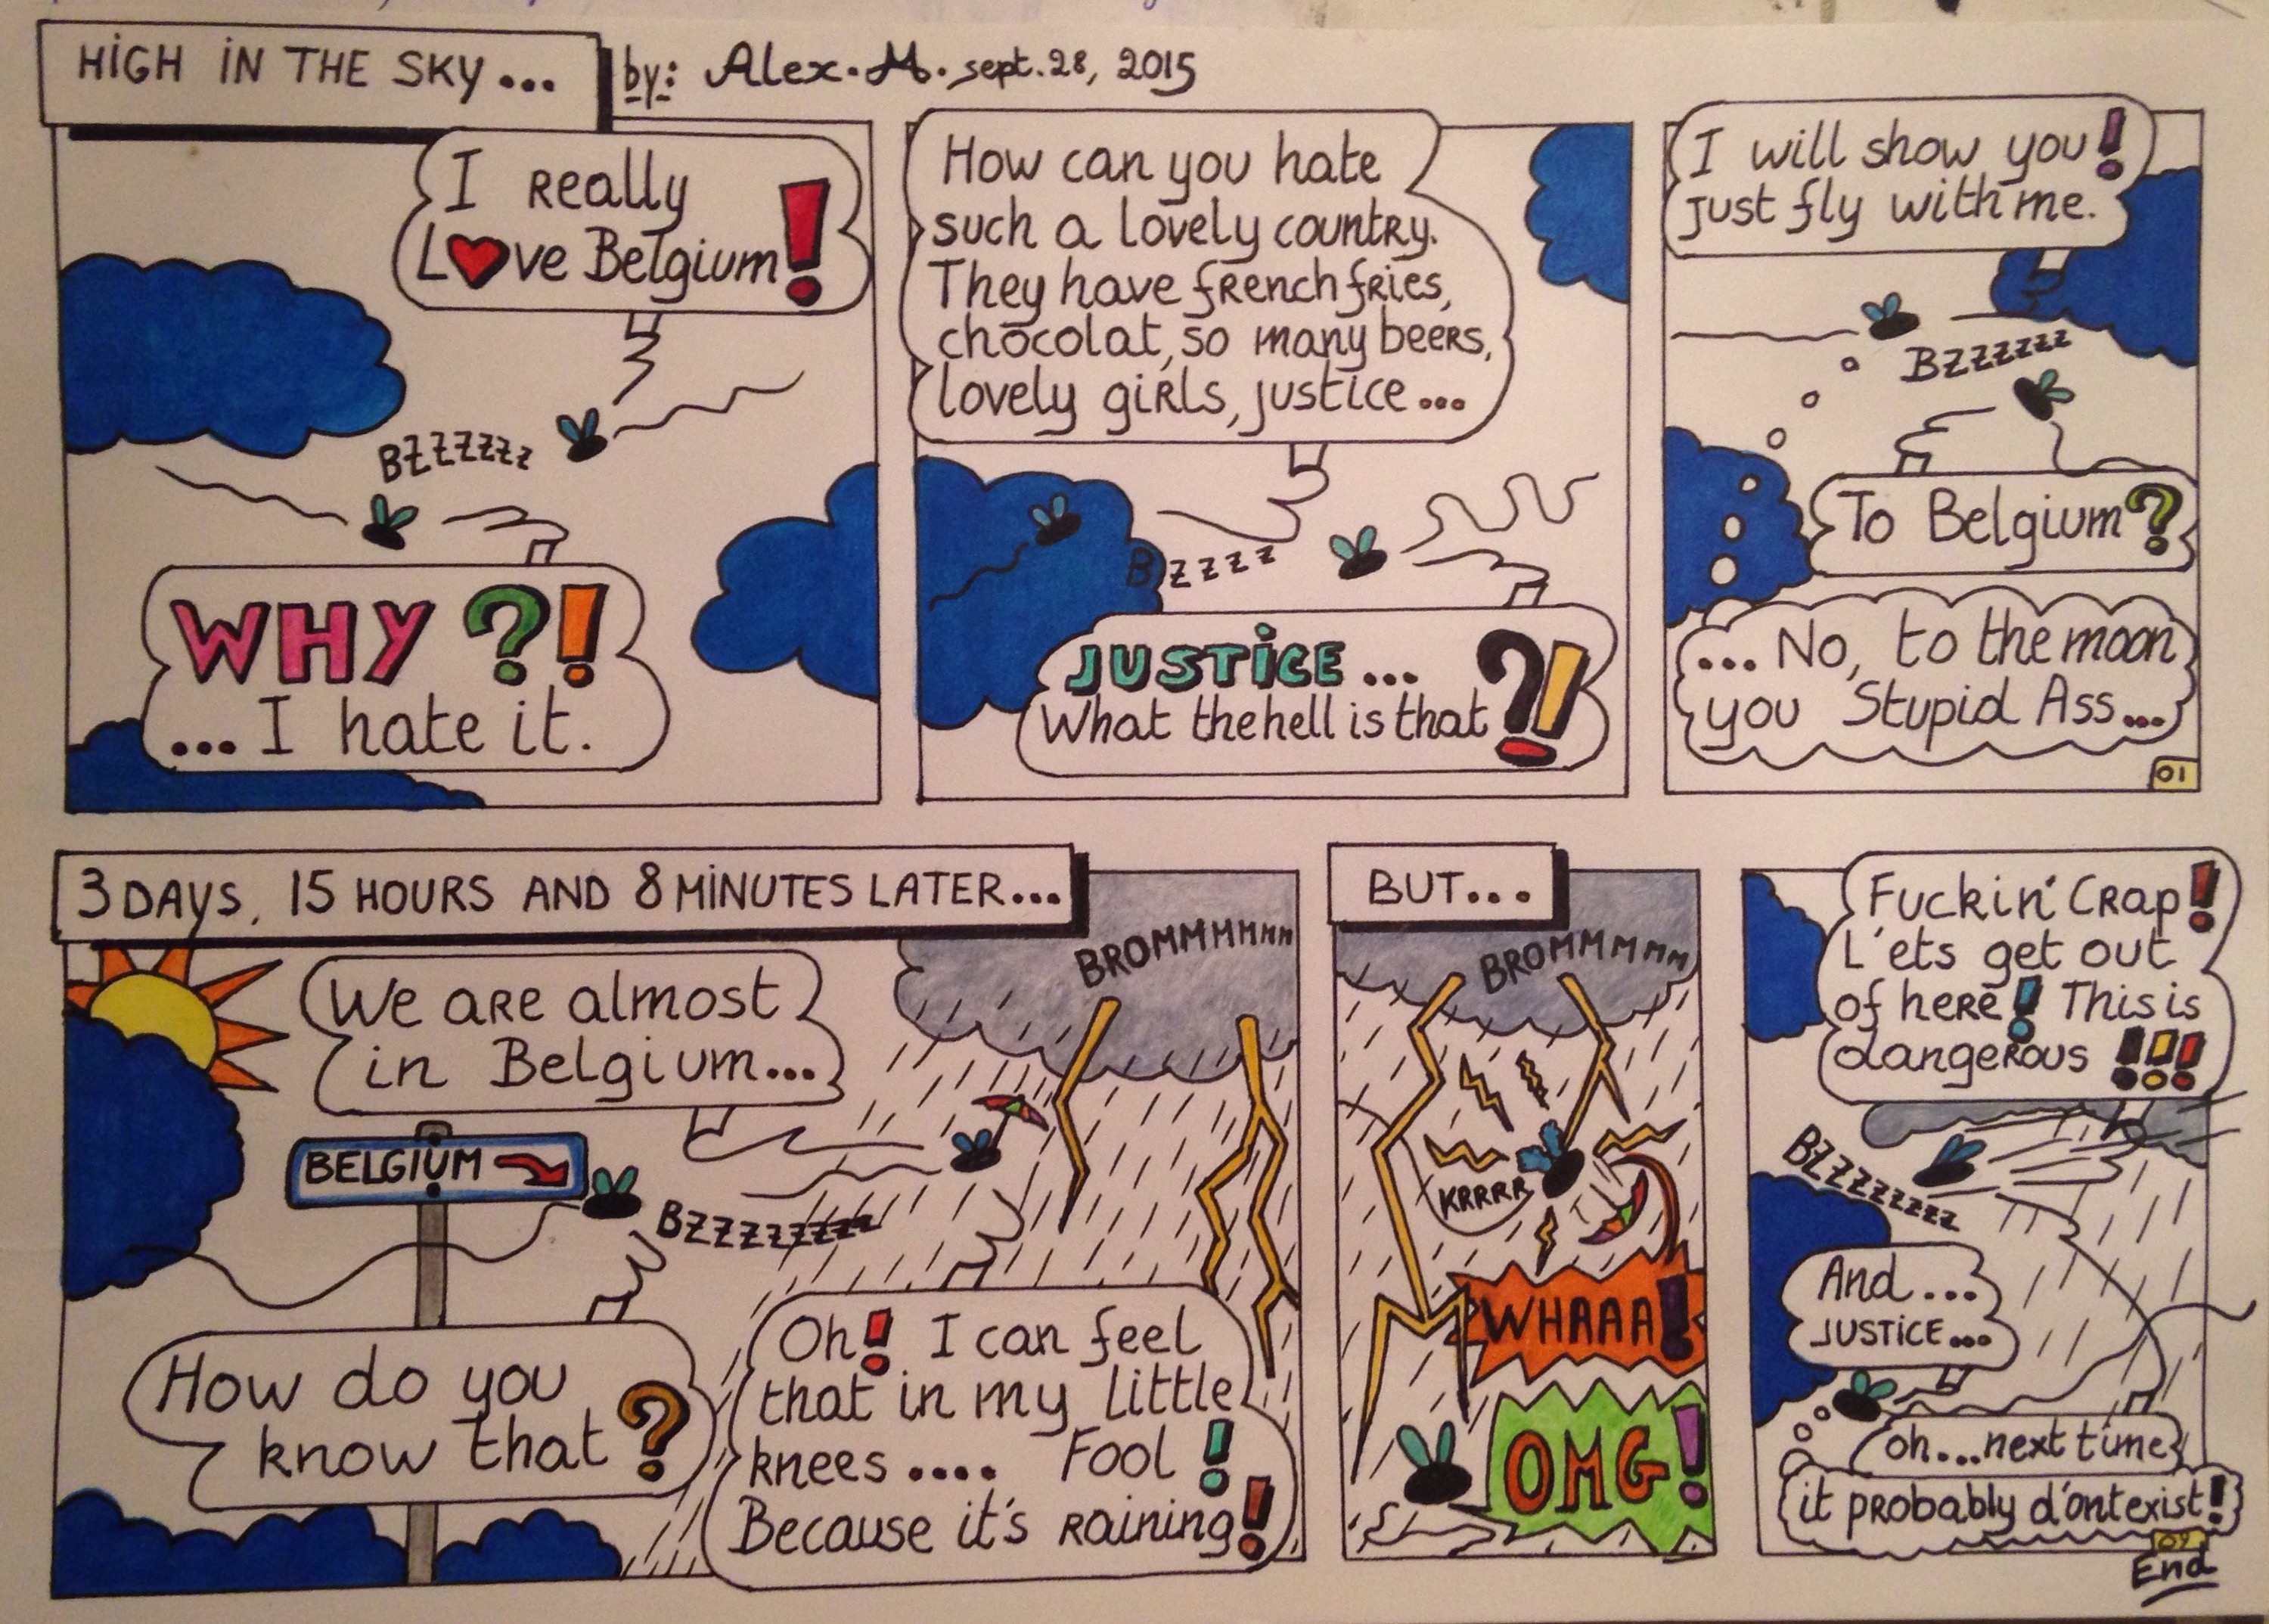 HIGH IN THE SKY...
by: Alex. M. sept. 28, 2015
I Really
Love Belgium!
BZZZZZZ
WHY ?!
... I hate it.
How can you hate
such a lovely country.
They have french fries,
chocolat, so many beers,
lovely girls, justice ...
BZZZZ
JUSTICE ...
What the hell is that ?!
I will show you!
just fly with me.
BZZZZZZ
To Belgium?
... No, to the moon
you Stupid Ass ...
01
3 DAYS, 15 HOURS AND 8 MINUTES LATER...
BROMMMMMM
We are almost
in Belgium...
BELGIUM
BZZZZZZZZ
How do you
know that ?
Oh! I can feel
that in my little
knees .... Fool !
Because it's raining!
BUT...
BROMMMMM
KRRRR
WHAAA!
OMG!
Fuckin' Crap!
L'ets get out
of here! This is
dangerous !!!
BZZZZZZZZ
And ...
JUSTICE ...
oh...next time
it probably d'ont exist!
End